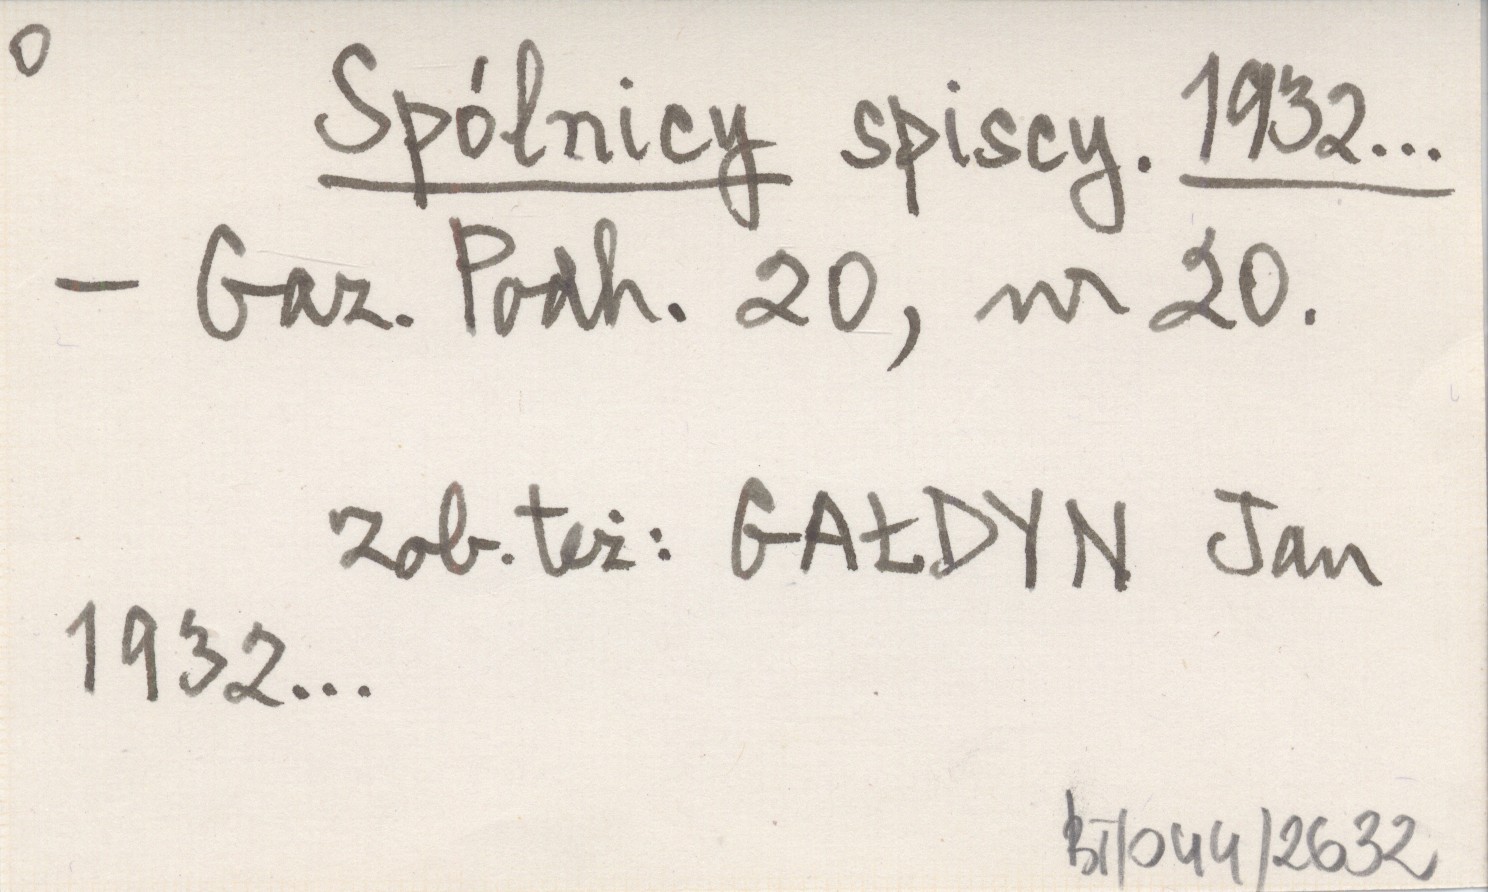 O
Spólnicy spiscy. 1932...
- Gaz. Podh. 20, nr 20.
zob. też: GAŁDYN Jan
1932...
BI/044/2632